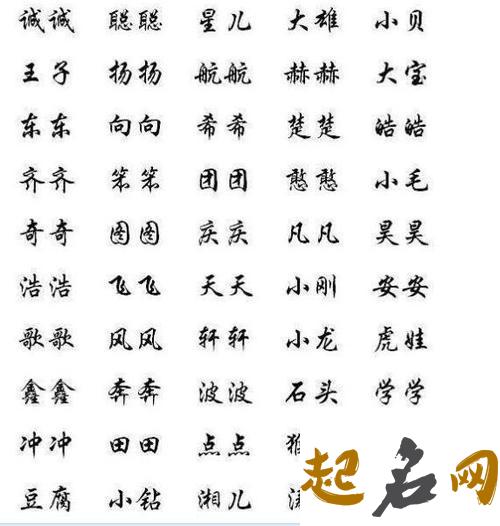 诚诚 聪聪 星儿 大雄 小贝
王子 扬扬 航航 赫赫 大宝
东东 向向 希希 楚楚 皓皓
齐齐 笨笨 团团 憨憨 小毛
奇奇 图图 庆庆 凡凡 昊昊
浩浩 飞飞 天天 小刚 安安
歌歌 风风 轩轩 小龙 虎娃
鑫鑫 奔奔 波波 石头 学学
冲冲 田田 点点
豆腐 小钻 湘儿
起名网